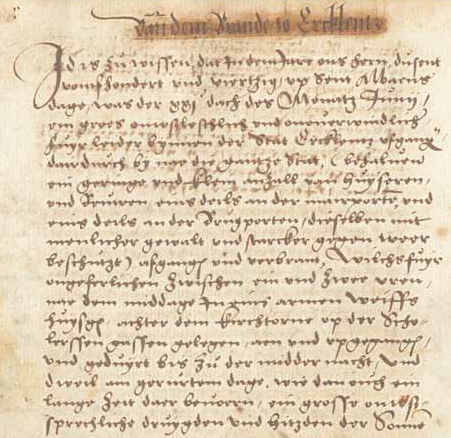 Van dem Brande to Ercklentz
Id is zu wissen, dat in dem Jare ons hern, dusent
vonffhondert und viertzig, up sent Albaens
dage, was der xxj dach des Monatz Junij,
ein groes onvesleschlich und onverwindlich
fuyr leider bynnen der Stat Ercklentz ofgang
dair durch by nae die gantze Stat, (behalven
ein geringe und klein anzall van huyseren,
und Renneren, eins deils an der mairporte, und
eins deils an der Brugporten, dieselben mit
menlicher gewalt und starcker gegen weer
beschutzt) afgangen und verbrant, Wilchs fuyr
ongeferlichen zwischen ein und zwee uren,
nae dem middage In eins armen weiffs
huysgen, achter dem kirchtorne op der Scho-
lerssen gassen gelegen, aen und upgegangen,
und geduyrt bis zu der midder nacht, Und
dweil am gerurtem dage, wie dan ouch ein
lange zeit daer bevorn, ein grosse onuss-
sprechliche druygden und hitzden der Sonne